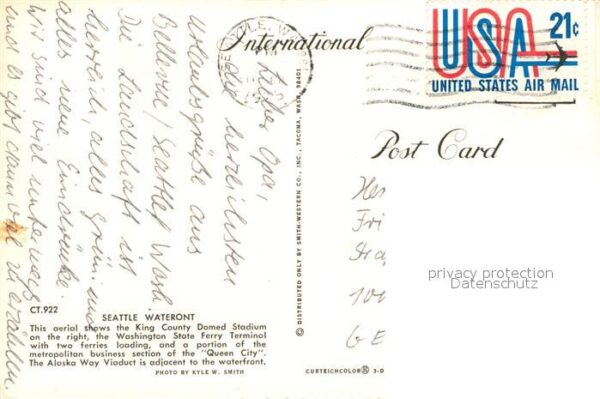 International
USA 21¢
UNITED STATES AIR MAIL
Post Card
Lieber Opa,
die herzlichsten
Urlaubsgrüße aus
Bellevue/Seattle, Wash.
Die Landschaft ist
herrlich, alles grün und
alles neue Eindrücke.
Wir sind viel unterwegs
und es gibt dann viel zu erzählen.
Her
Fri
Stra
100
GE
privacy protection
Datenschutz
© DISTRIBUTED ONLY BY SMITH-WESTERN CO., INC., TACOMA, WASH. 98401
CT.922
SEATTLE WATERONT
This aerial shows the King County Domed Stadium
on the right, the Washington State Ferry Terminal
with two ferries loading, and a portion of the
metropolitan business section of the "Queen City".
The Alaska Way Viaduct is adjacent to the waterfront.
PHOTO BY KYLE W. SMITH
CURTEICHCOLOR® 3-D